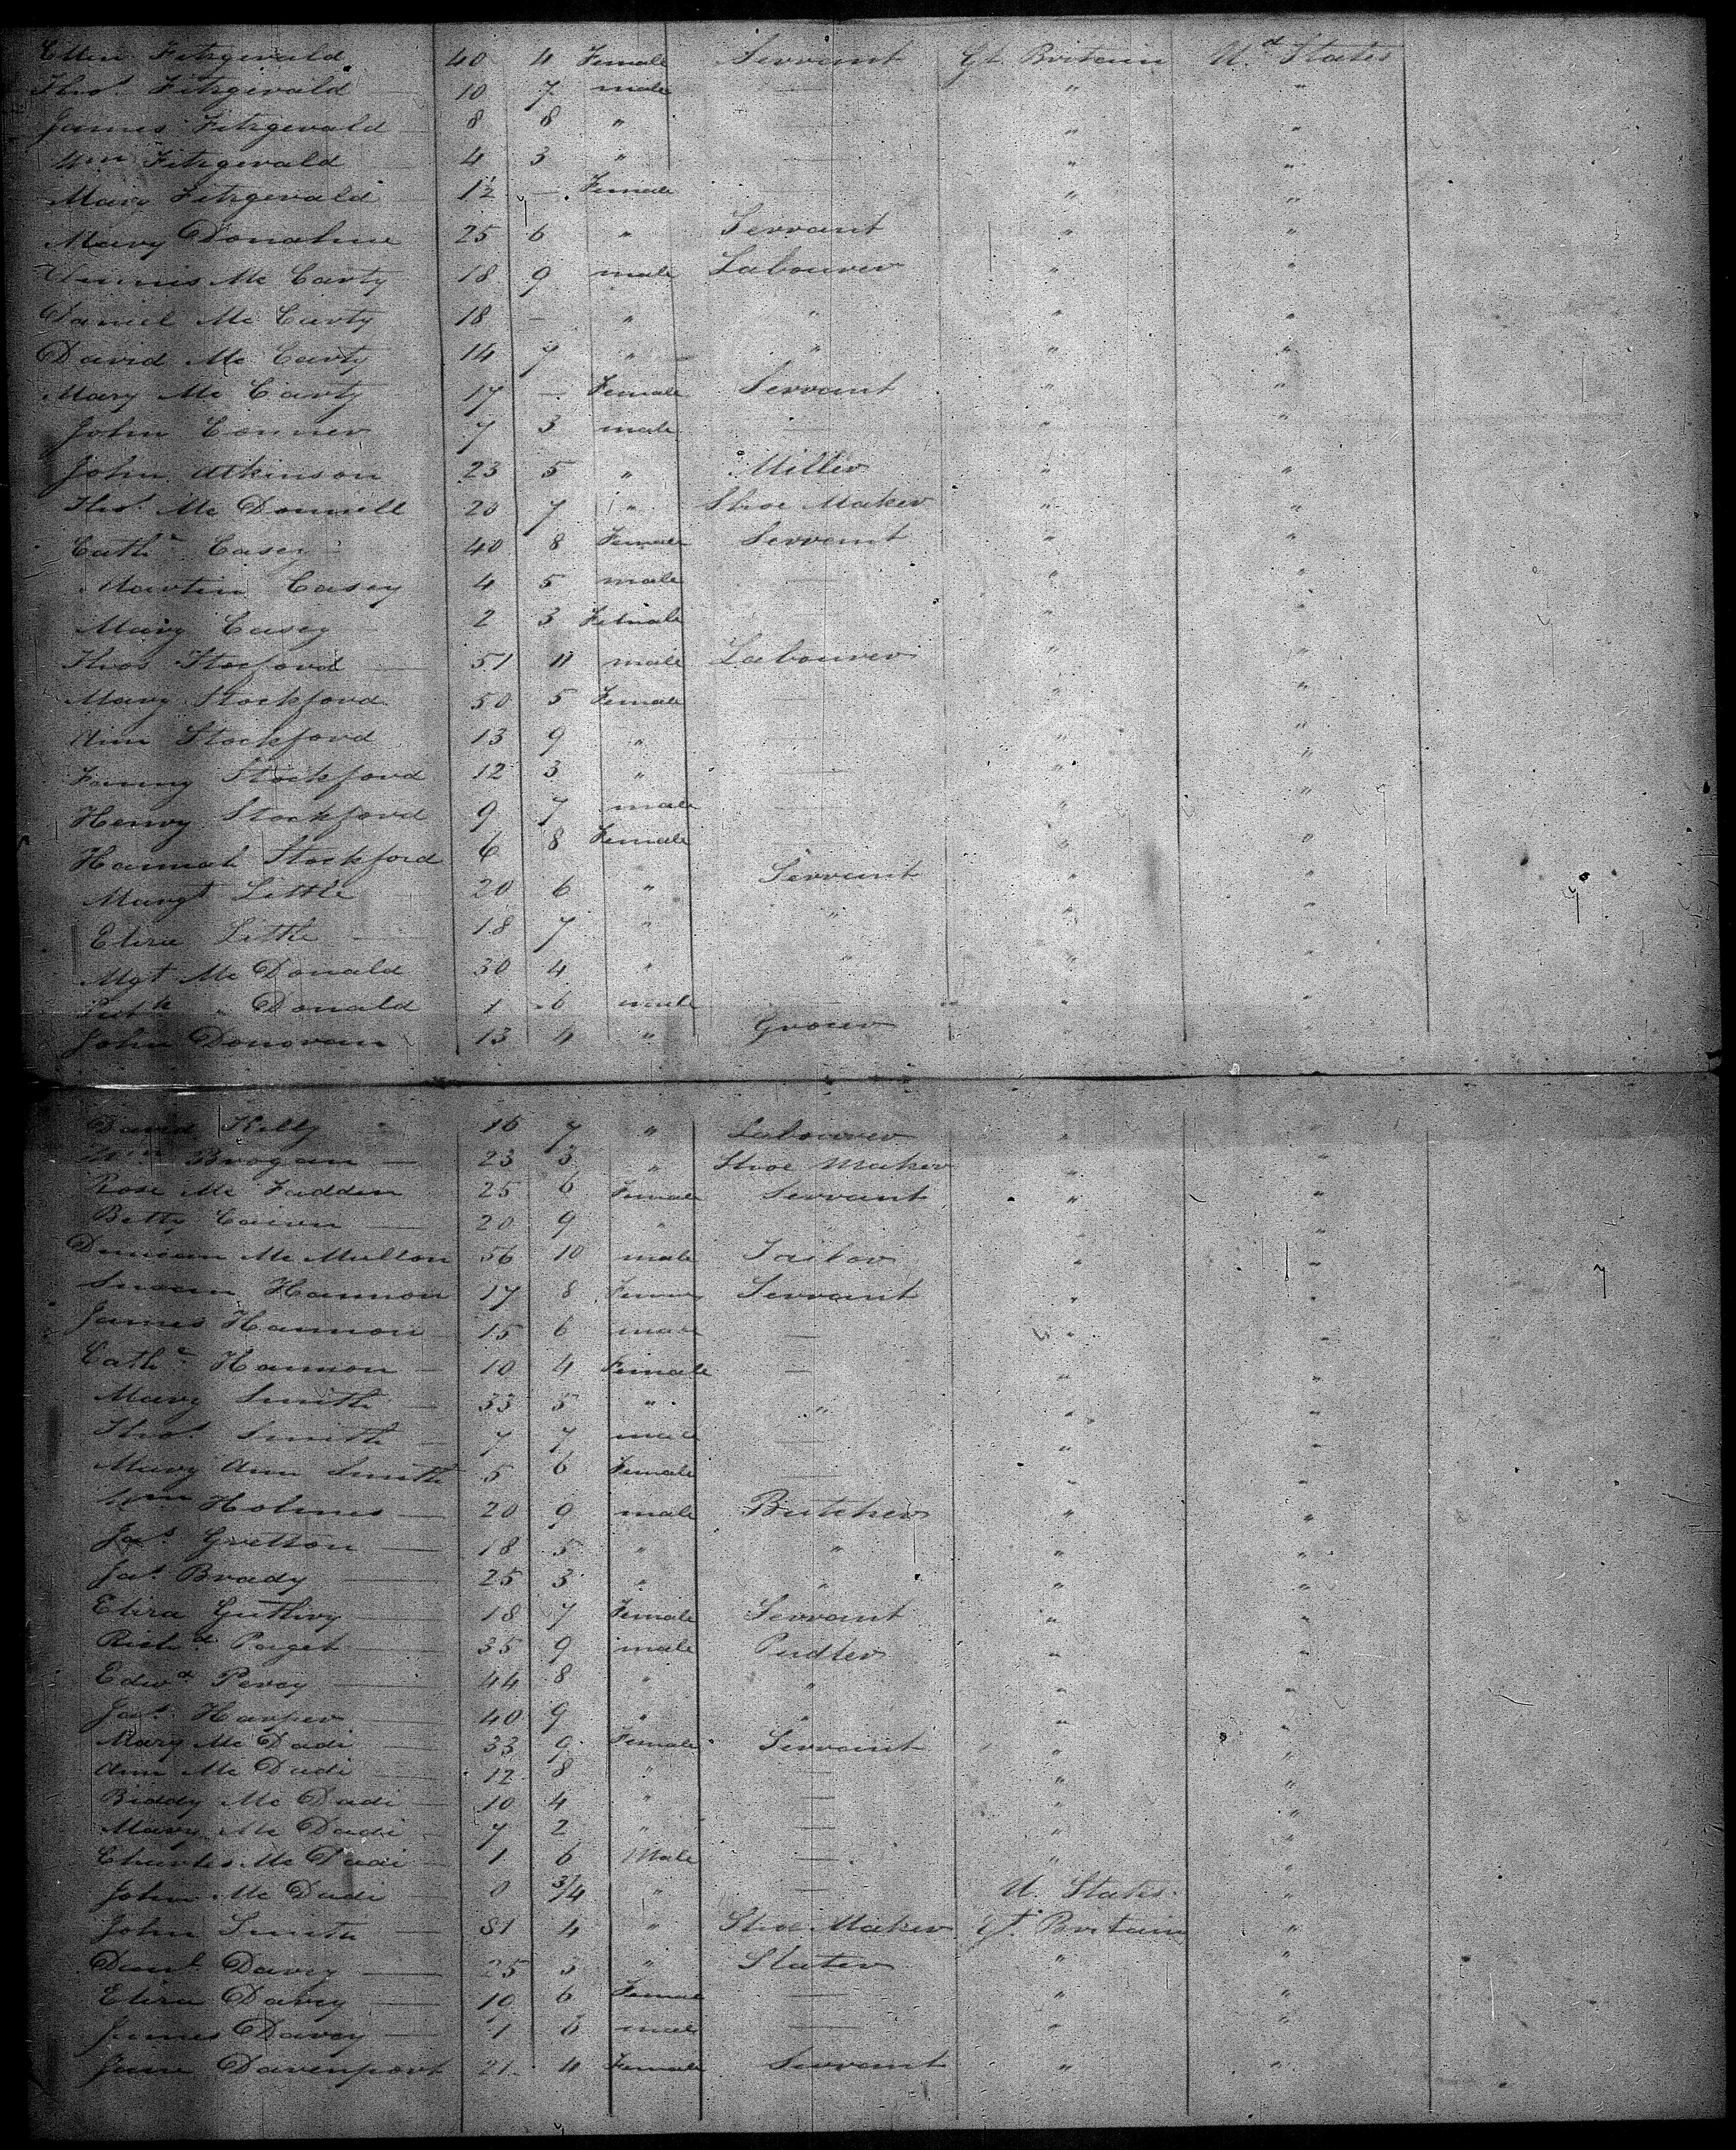 Ellen Fitzgerald 40 4 Female Servant Gt. Britain Ud States
Thos. Fitzgerald 10 7 male — " "
James Fitzgerald 8 8 " — " "
Wm Fitzgerald 4 3 " — " "
Mary Fitzgerald 1½ — Female — " "
Mary Donahue 25 6 " Servant " "
Dennis Mc Carty 18 9 male Labourer " "
Daniel Mc Carty 18 — " " " "
David Mc Carty 14 7 " " " "
Mary Mc Carty 17 — Female Servant " "
John Conner 7 3 male — " "
John Atkinson 23 5 " Miller " "
Thos. Mc Donnell 20 7 " Shoe Maker " "
Cathe Casey 40 8 Female Servant " "
Martin Casey 4 5 male — " "
Mary Casey 2 3 Female — " "
Thos Stocford — 51 11 male Labourer " "
Mary Stockford 50 5 Female — " "
Ann Stockford 13 9 " — " "
Fanny Stockford 12 3 " — " "
Henry Stockford 9 7 male — " "
Hannah Stockford 6 8 Female — " "
Margt Little 20 6 " Servant " "
Eliza Little — 18 7 " " " "
Mgt Mc Donald 30 4 " " " "
Patk " Donald 1 6 male — " "
John Donovan 13 4 " Grocer "
David Kelly 16 7 " Labourer " "
Wm Brogan — 23 3 " Shoe Maker " "
Rose Mc Fadden 25 6 Female Servant " "
Betty — 20 9 " " " "
Duncan Mc Mullon 56 10 male Tailor " "
Susan Hannon 17 8 Servant " "
James Hannon 15 6 male — " "
Cathe Hannon — 10 4 Female — " "
Mary Smith — 33 5 " " " "
Thos. Smith — 7 7 male — " "
Mary Ann Smith 5 6 Female — " "
Wm Holmes — 20 9 male Butcher " "
Jas. Gretton — 18 5 " " " "
Jas. Brady — 25 3 " " " "
Eliza Guthry — 18 7 Female Servant " "
Richd. Paget — 35 9 male Pudler " "
Edwd Percy — 44 8 " " " "
Jas. Harper — 40 9 " " " "
Mary Mc Dadi — 33 9 Female Servant " "
Ann Mc Dadi — 12 8 " — " "
Biddy Mc Dadi — 10 4 " — " "
Mary Mc Dadi — 7 2 " — " "
Charles Mc Dadi — 1 6 Male — " "
John Mc Dadi — 0 3/4 " — U. States "
John Smith — 31 4 " Shoe Maker Gt. Britain "
Danl Davey — 25 3 " Slater " "
Eliza Davey — 10 6 Female — " "
James Davey — 1 male — " "
Jane Davenport 21 4 Female Servant " "